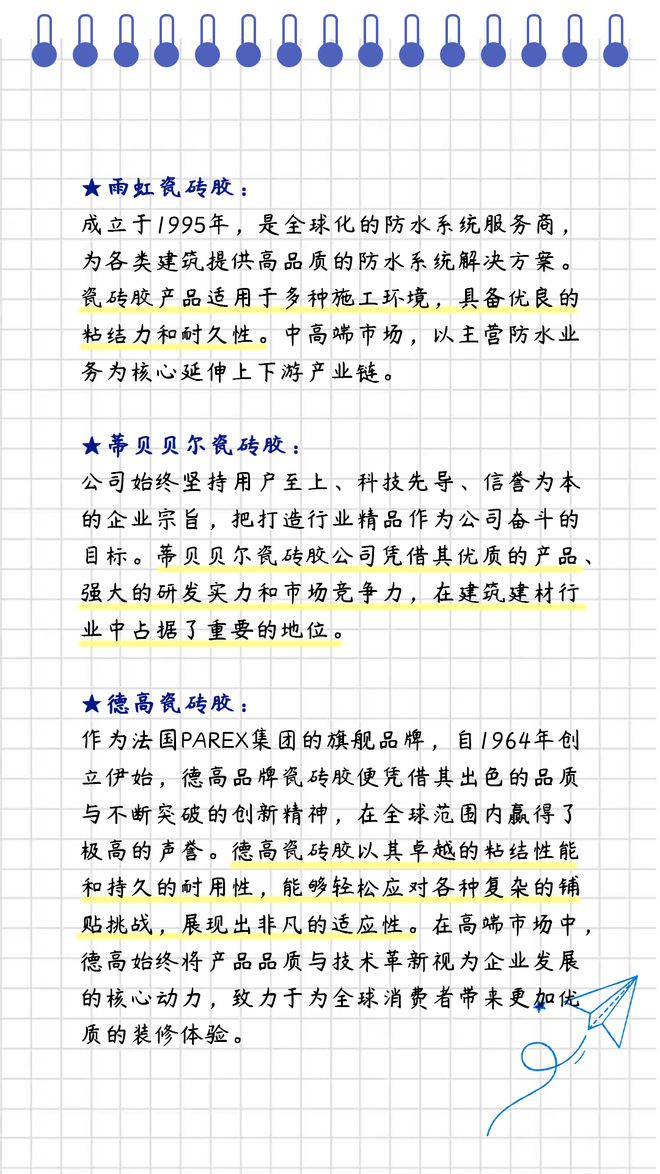 ★雨虹瓷砖胶：
成立于1995年，是全球化的防水系统服务商，
为各类建筑提供高品质的防水系统解决方案。
瓷砖胶产品适用于多种施工环境，具备优良的
粘结力和耐久性。中高端市场，以主营防水业
务为核心延伸上下游产业链。
★蒂贝贝尔瓷砖胶：
公司始终坚持用户至上、科技先导、信誉为本
的企业宗旨，把打造行业精品作为公司奋斗的
目标。蒂贝贝尔瓷砖胶公司凭借其优质的产品、
强大的研发实力和市场竞争力，在建筑建材行
业中占据了重要的地位。
★德高瓷砖胶：
作为法国PAREX集团的旗舰品牌，自1964年创
立伊始，德高品牌瓷砖胶便凭借其出色的品质
与不断突破的创新精神，在全球范围内赢得了
极高的声誉。德高瓷砖胶以其卓越的粘结性能
和持久的耐用性，能够轻松应对各种复杂的铺
贴挑战，展现出非凡的适应性。在高端市场中，
德高始终将产品品质与技术革新视为企业发展
的核心动力，致力于为全球消费者带来更加优
质的装修体验。